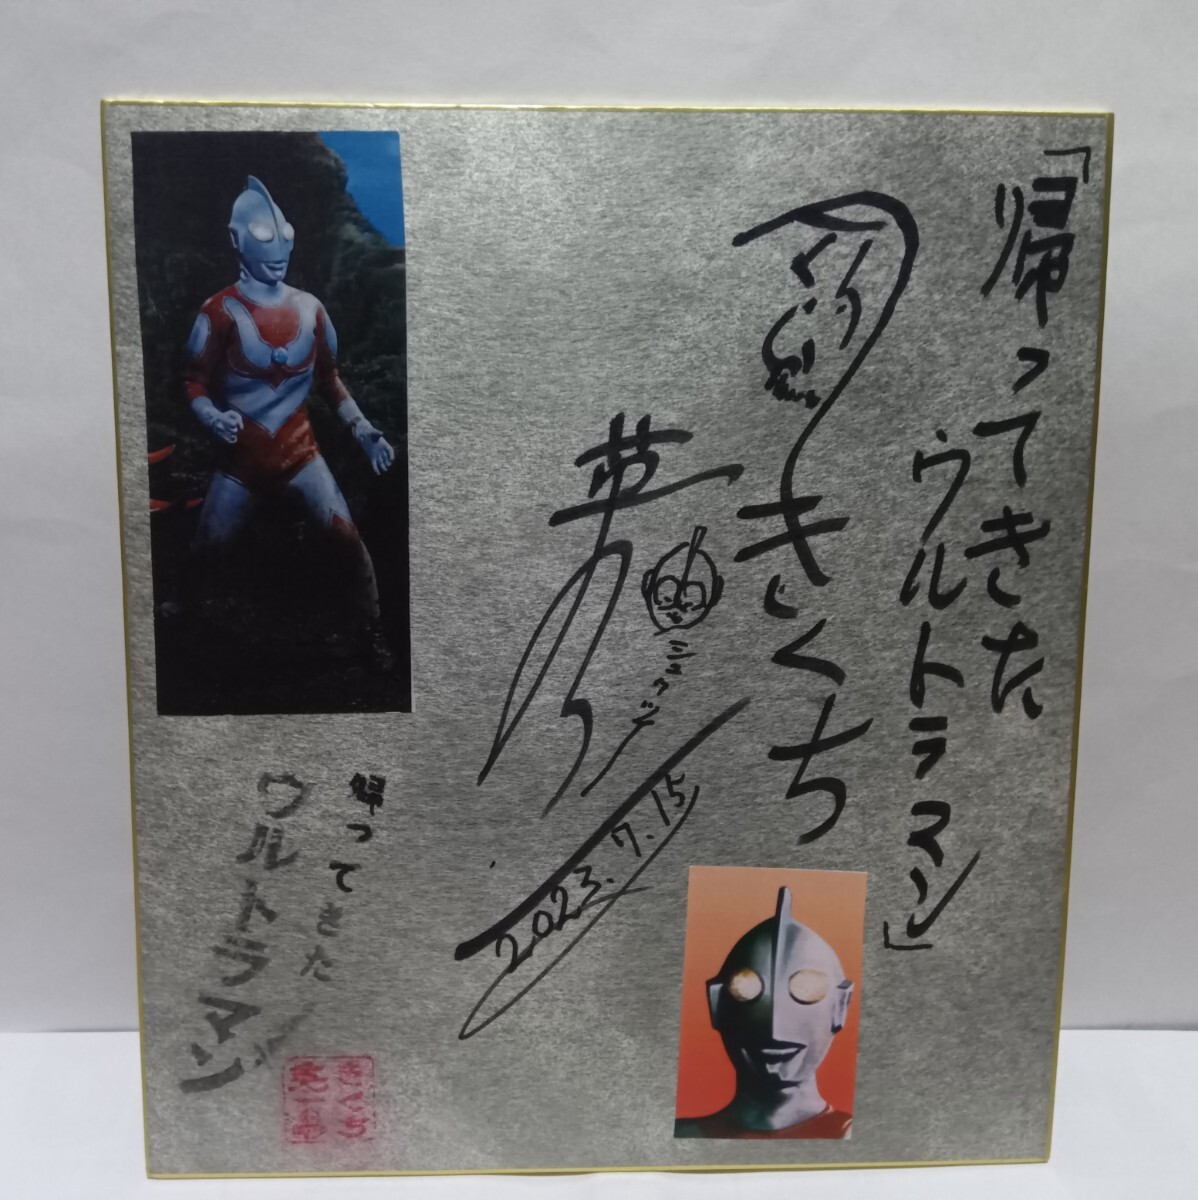 「帰ってきた
ウルトラマン」
きくち
英一
ジャック
2023.7.15
帰ってきた
ウルトラマン
きくち
英一